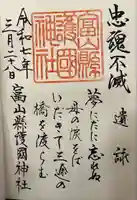 忠魂不滅
遺詠
夢にだに忘れぬ
母の涙をば
いだきて三途の
橋を渡らむ
富山縣
護國
神社
令和七年
三月
富山縣護國神社